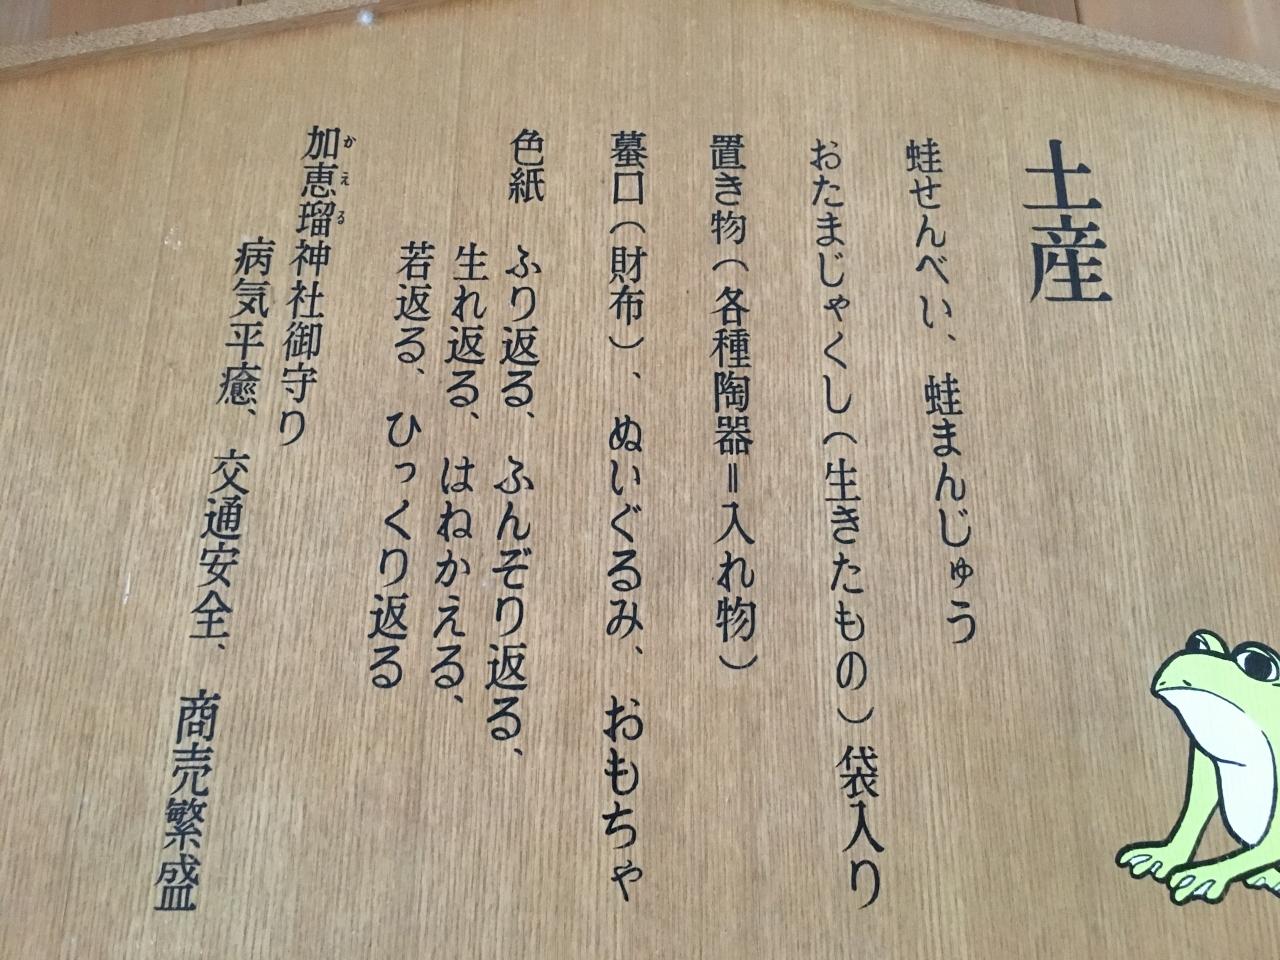 土産
蛙せんべい、蛙まんじゅう
おたまじゃくし（生きたもの）袋入り
置き物（各種陶器＝入れ物）
蟇口（財布）、ぬいぐるみ、おもちゃ
色紙　ふり返る、ふんぞり返る、
生れ返る、はねかえる、
若返る、ひっくり返る
加恵瑠神社御守り
かえる
病気平癒、交通安全、商売繁盛